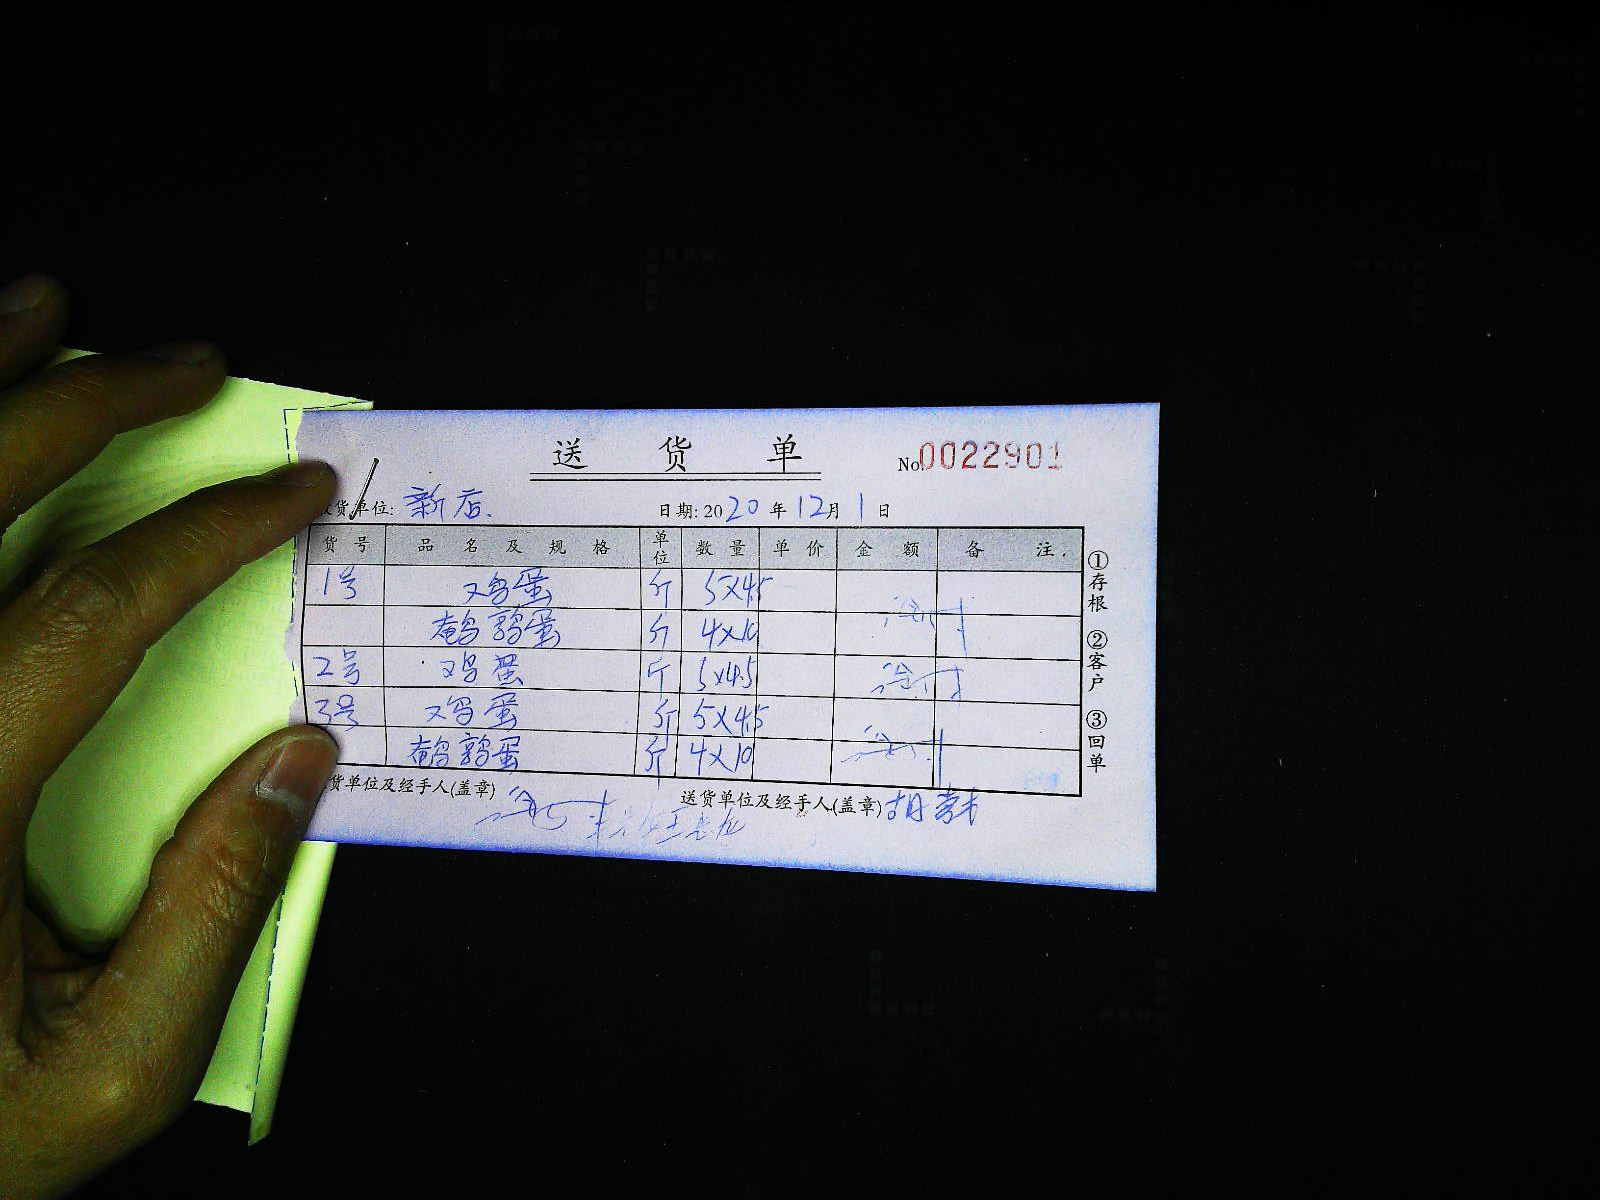 送货单
No.0022901
货单位: 新店.
日期: 2020年12月1日
货号 品名及规格 单位 数量 单价 金额 备注.
1号 鸡蛋 斤 5×45
鹌鹑蛋 斤 4×10
2号 鸡蛋 斤 5×45
3号 鸡蛋 斤 5×45
鹌鹑蛋 斤 4×10
货单位及经手人(盖章)
送货单位及经手人(盖章) 胡
①存根 ②客户 ③回单